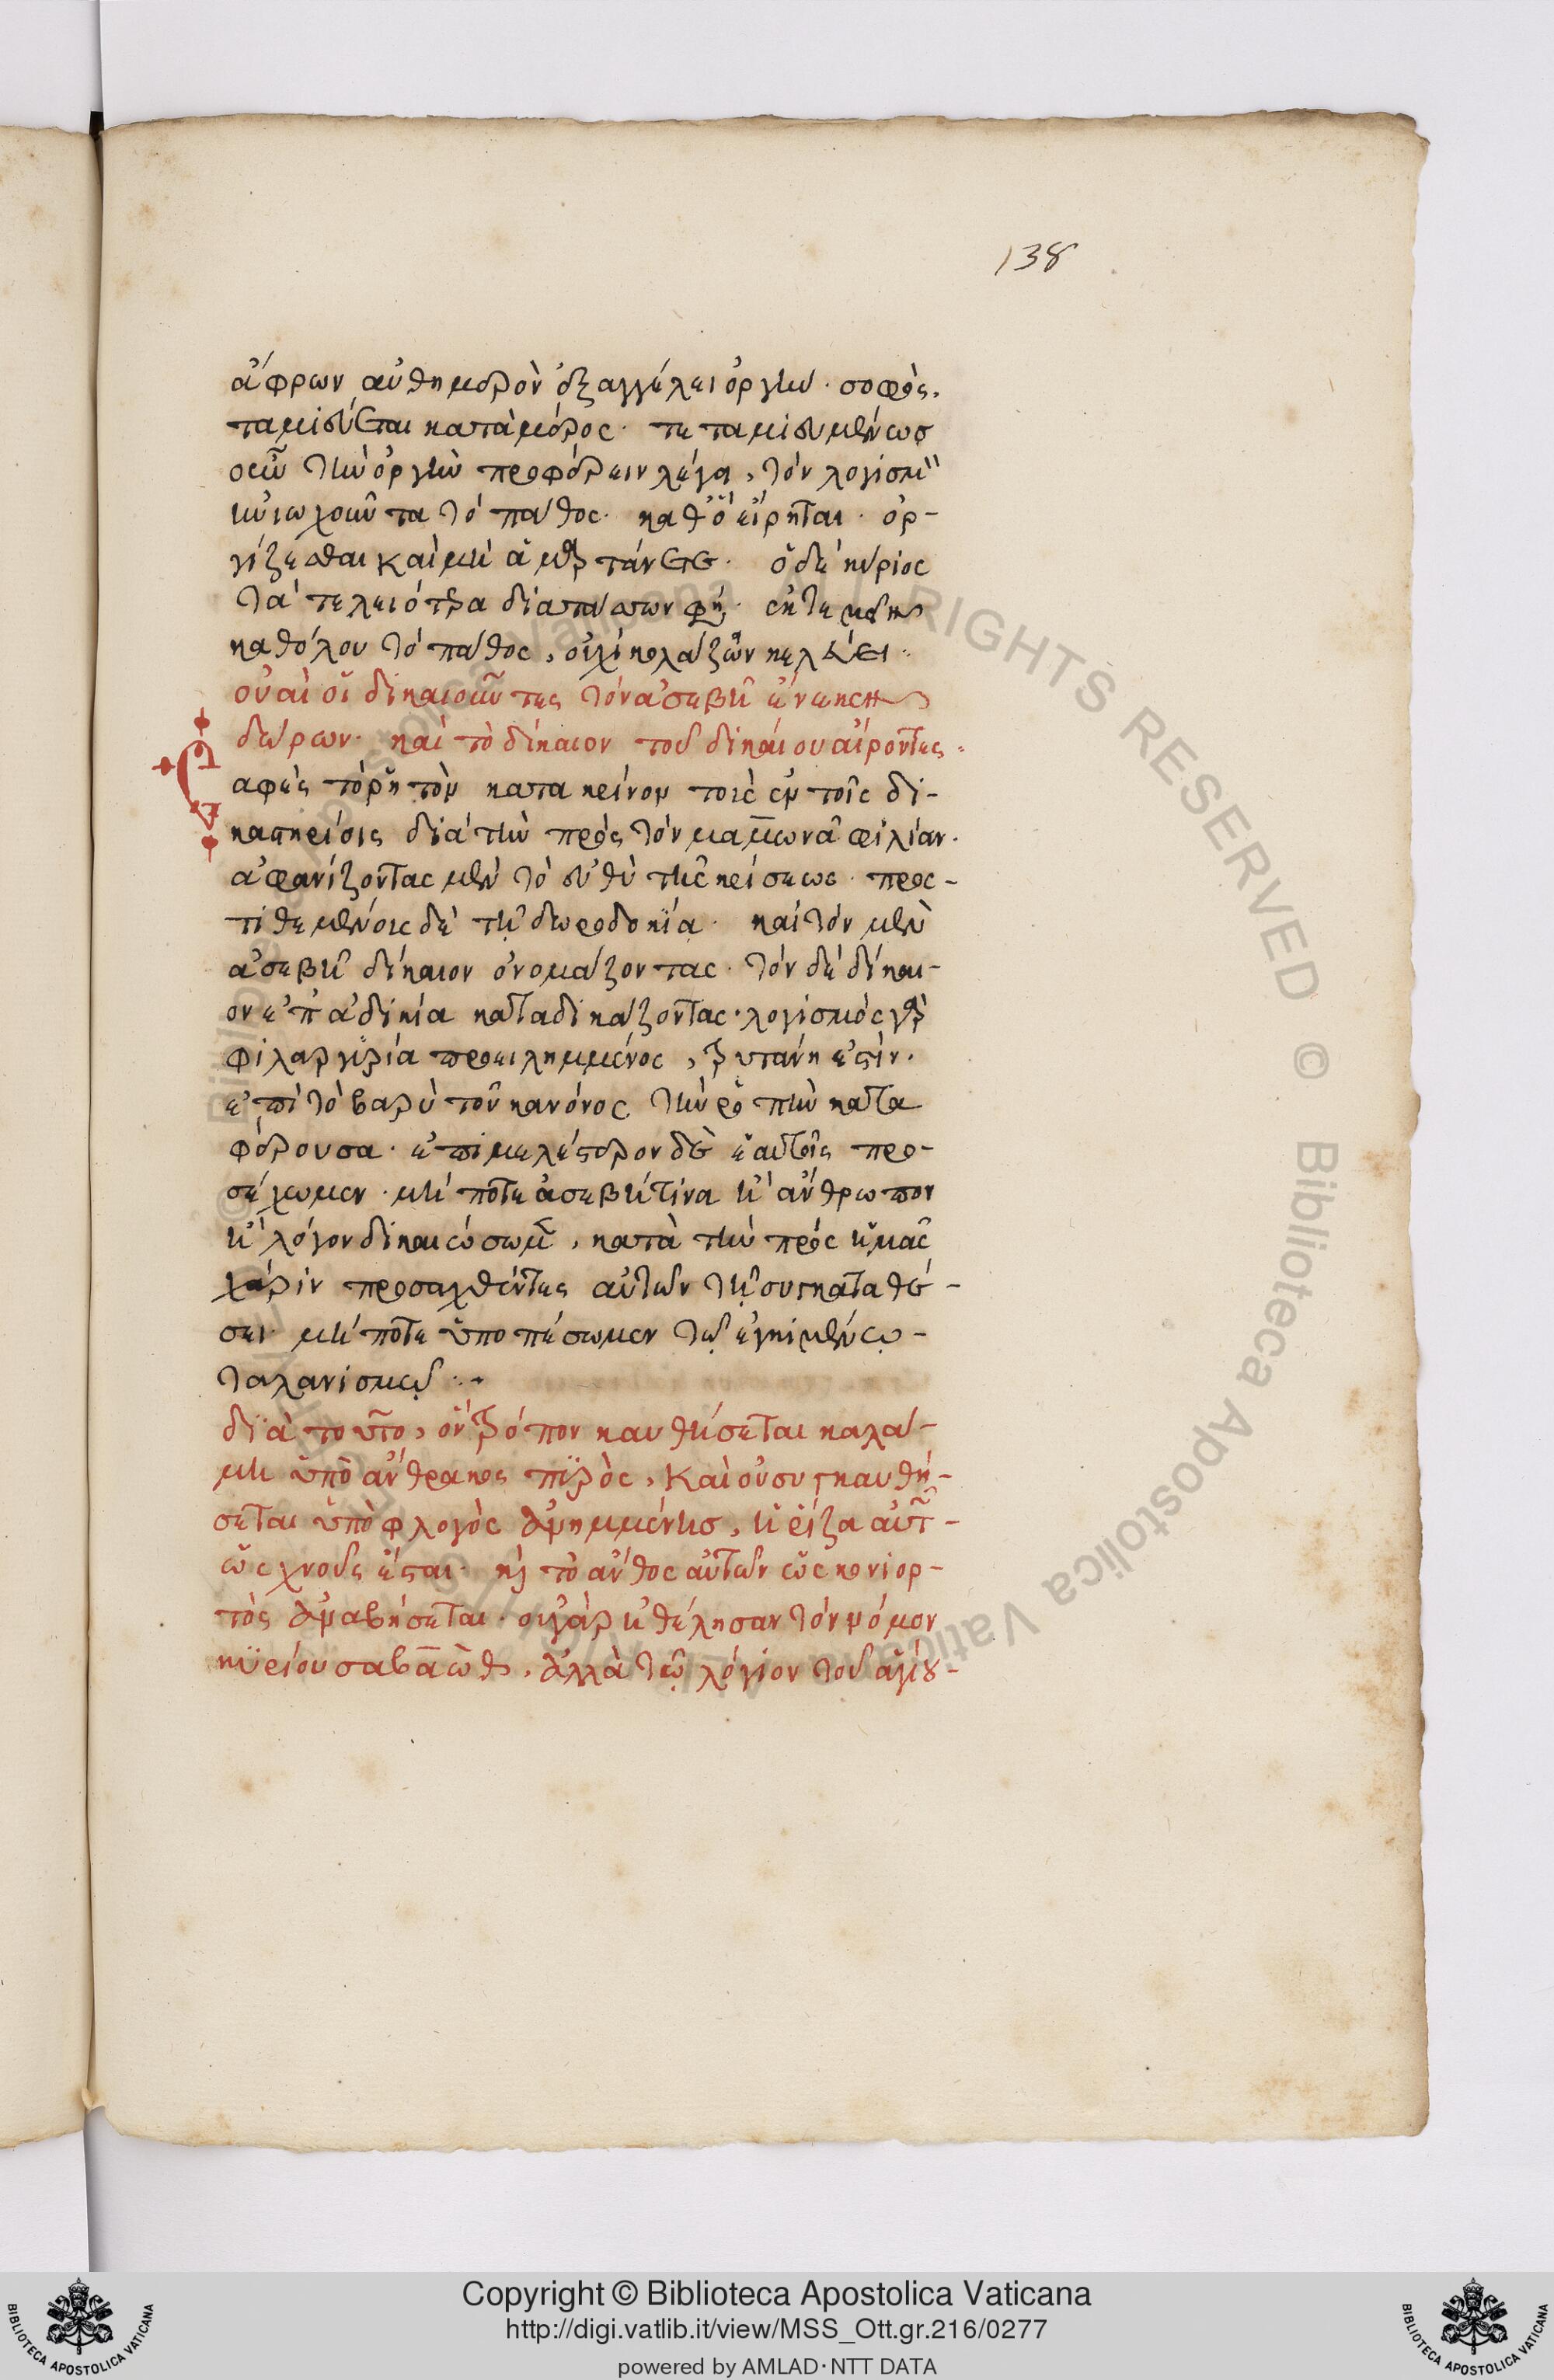 138
ἄφρων αὐθημερὸν ἐξαγγέλει ὀργήν · σοφὸς.
ταμιεύεται κατὰ μέρος · τεταμιευμένωσ
οὖν τὴν ὀργὴν προφέρειν λέγει, τὸν λογισμὸν
ἡνιωχοῦντα τὸ πάθος · καθὃ εἴρηται · ὀρ-
γίζεσθαι καὶ μὴ ἁμαρτάνετε · ὁ δὲ κύριος
τὰ τελειότερα διατάσσων φησί · ἐκτεμεῖν
καθόλου τὸ πάθος, οὐχὶ κολάζειν κελεύει ··
οὐαὶ οἱ δικαιοῦντες τὸν ἀσεβῆ ἕνεκεν
δώρων · καὶ τὸ δίκαιον τοῦ δικαίου αἴροντες ·
αφεὶς τὸ ῥητὸν κατακρίνον τοὺς ἐν τοῖς δι-
καστηρίοις διὰ τὴν πρὸς τὸν μαμωνᾶ φιλίαν ·
ἀφανίζοντας μὲν τὸ εὐθὺ τῆς κρίσεως · προς-
τιθεμένοις δὲ τῇ δωροδοκίᾳ · καὶ τὸν μὲν
ἀσεβῆ δίκαιον ὀνομάζοντας · τὸν δὲ δίκαι-
ον ἐπ' ἀδικία καταδικάζοντας · λογισμὸς γὰρ
φιλαργυρία προειλημμένος, τρυτάνη ἐστίν ·
ἐπὶ τὸ βαρὺ τοῦ κανόνος τὴν ῥοπὴν κατα
φέρουσα · ἐπιμελέστερον δὲ ἑαυτοῖς προ-
σέχωμεν · μή ποτε ἀσεβῆ τινα ἢ ἄνθρωπον
ἢ λόγον δικαιώσωμεν, κατὰ τὴν πρὸς ἡμᾶς
χάριν προσαχθέντες αὐτῶν τῇ συγκαταθέ-
σει · μή ποτε ὑποπέσωμεν τῷ ἐγκειμένῳ-
ταλανισμῷ ··
διὰ τοῦτο, ὃν τρόπον καυθήσεται καλά-
μη ὑπὸ ἄνθρακος πυρὸς, καὶ οὐ συγκαυθή-
σεται ὑπὸ φλογὸς ἀνημμένησ, ἡ ῥίζα αὐτῶν-
ὡς χνοῦς ἔσται · καὶ τὸ ἄνθος αὐτῶν ὡς κονιορ-
τὸς ἀναβήσεται · οὐ γὰρ ἠθέλησαν τὸν νόμον
κυρίου σαβαὼθ, ἀλλὰ τῷ λόγιον τοῦ ἁγίου-
Copyright © Biblioteca Apostolica Vaticana
http://digi.vatlib.it/view/MSS_Ott.gr.216/0277
powered by AMLAD·NTT DATA